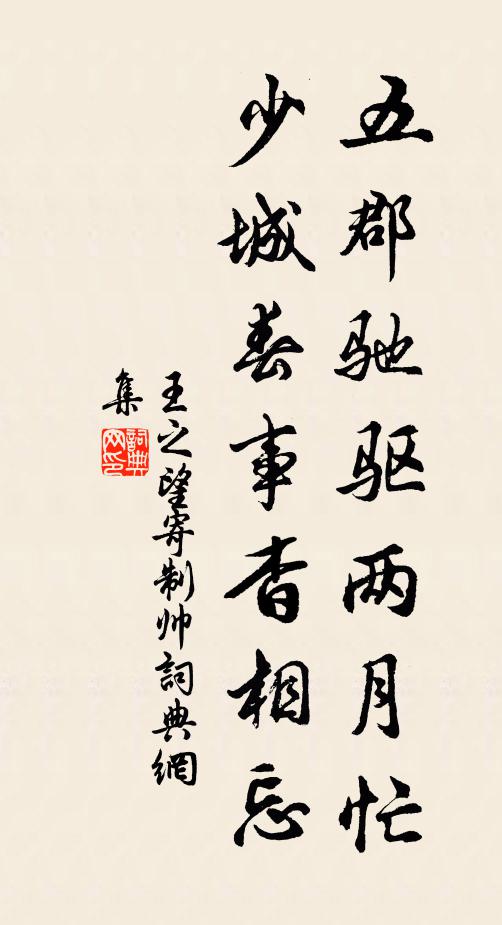 五郡驰驱两月忙
少城春事杳相忘
王之望寄制帅詞典網
集
詞典网印